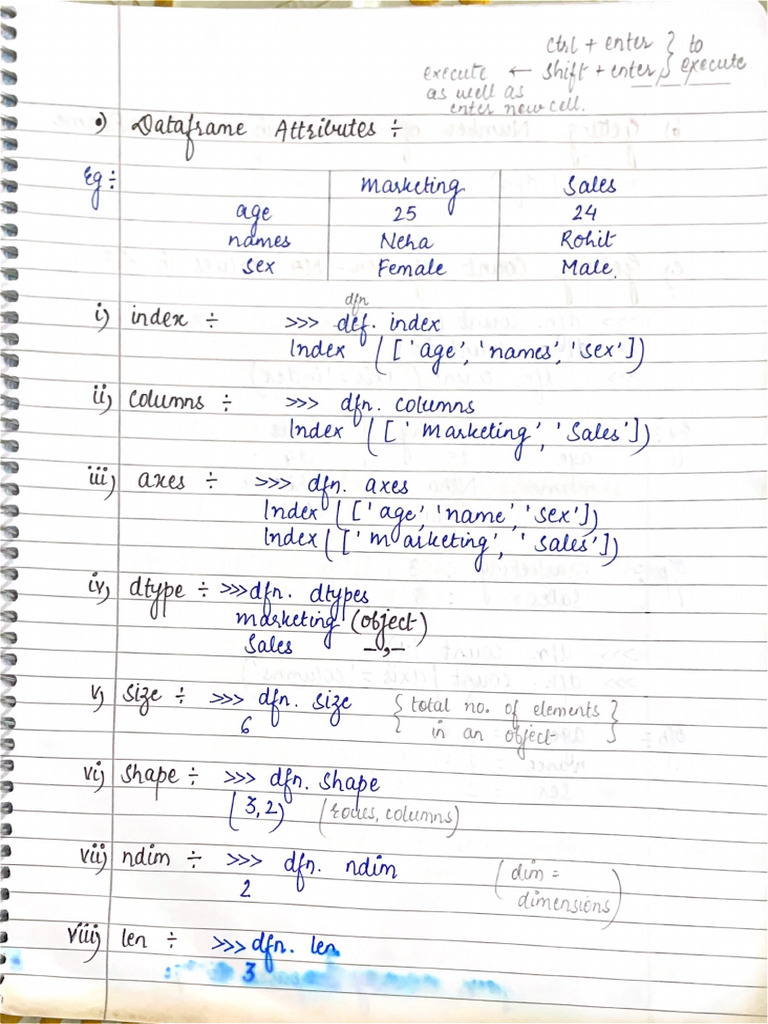 ctrl + enter } to
execute ← shift + enter } execute
as well as
enter new cell.
Dataframe Attributes ÷
Eg ÷ marketing Sales
age 25 24
names Neha Rohit
Sex Female Male.
dfn
i) index ÷ >>> def. index
Index (['age', 'names', 'sex'])
ii) columns ÷ >>> dfn. columns
Index (['marketing', 'Sales'])
iii) axes ÷ >>> dfn. axes
Index (['age', 'name', 'sex'])
Index (['marketing', 'Sales'])
iv) dtype ÷ >>> dfn. dtypes
marketing (object)
Sales –,,–
v) size ÷ >>> dfn. size { total no. of elements }
6 { in an object }
vi) shape ÷ >>> dfn. shape
(3,2) (rows, columns)
vii) ndim ÷ >>> dfn. ndim (dim =
2 dimensions)
viii) len ÷ >>> dfn. len
3